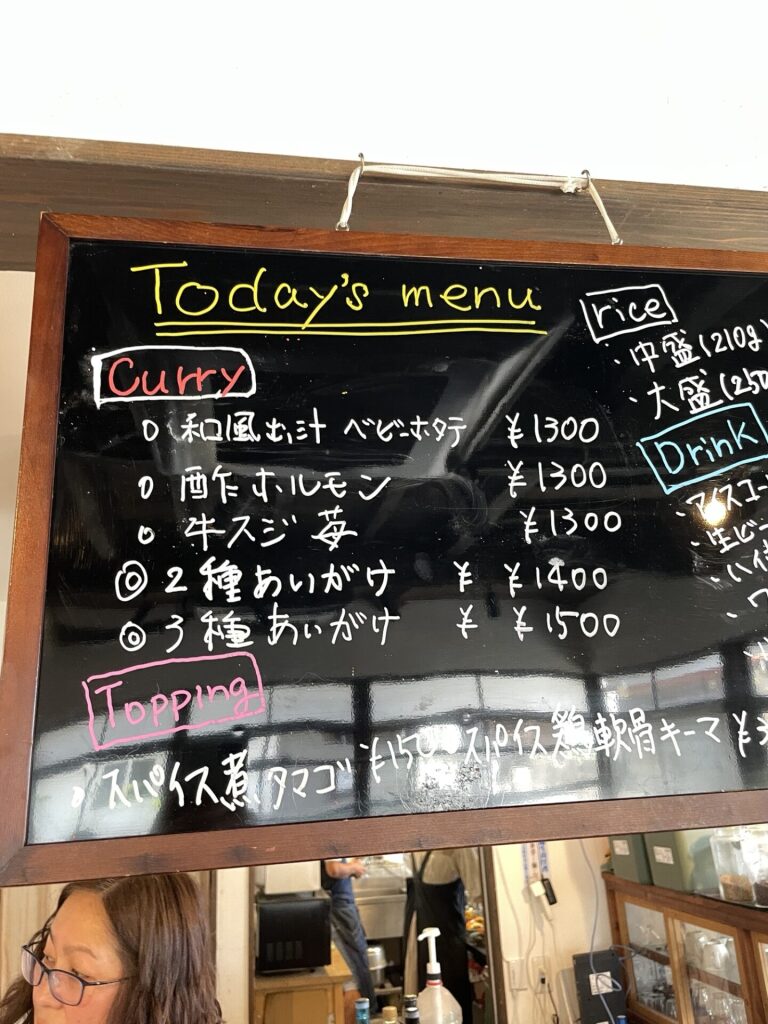 Today's menu
Curry
○ 和風出汁 ベビーホタテ ¥1300
○ 酢ホルモン ¥1300
○ 牛スジ 苺 ¥1300
◎ 2種あいがけ ¥ ¥1400
◎ 3種あいがけ ¥ ¥1500
Topping
○ スパイス煮タマゴ ¥150 ・スパイス鶏軟骨キーマ ¥3
rice
・中盛(210g)
・大盛(250
Drink
・アイスコー
・生ビー
・ハイ
・ワ